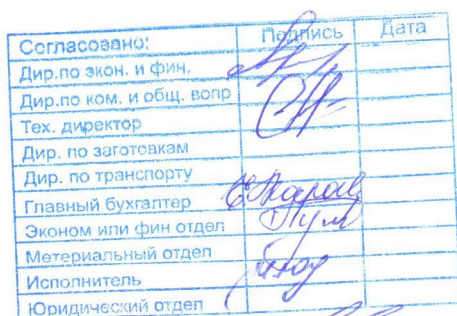 Согласовано: Подпись Дата
Дир.по экон. и фин.
Дир.по ком. и общ. вопр
Тех. директор
Дир. по заготовкам
Дир. по транспорту
Главный бухгалтер
Эконом или фин отдел
Метериальный отдел
Исполнитель
Юридический отдел